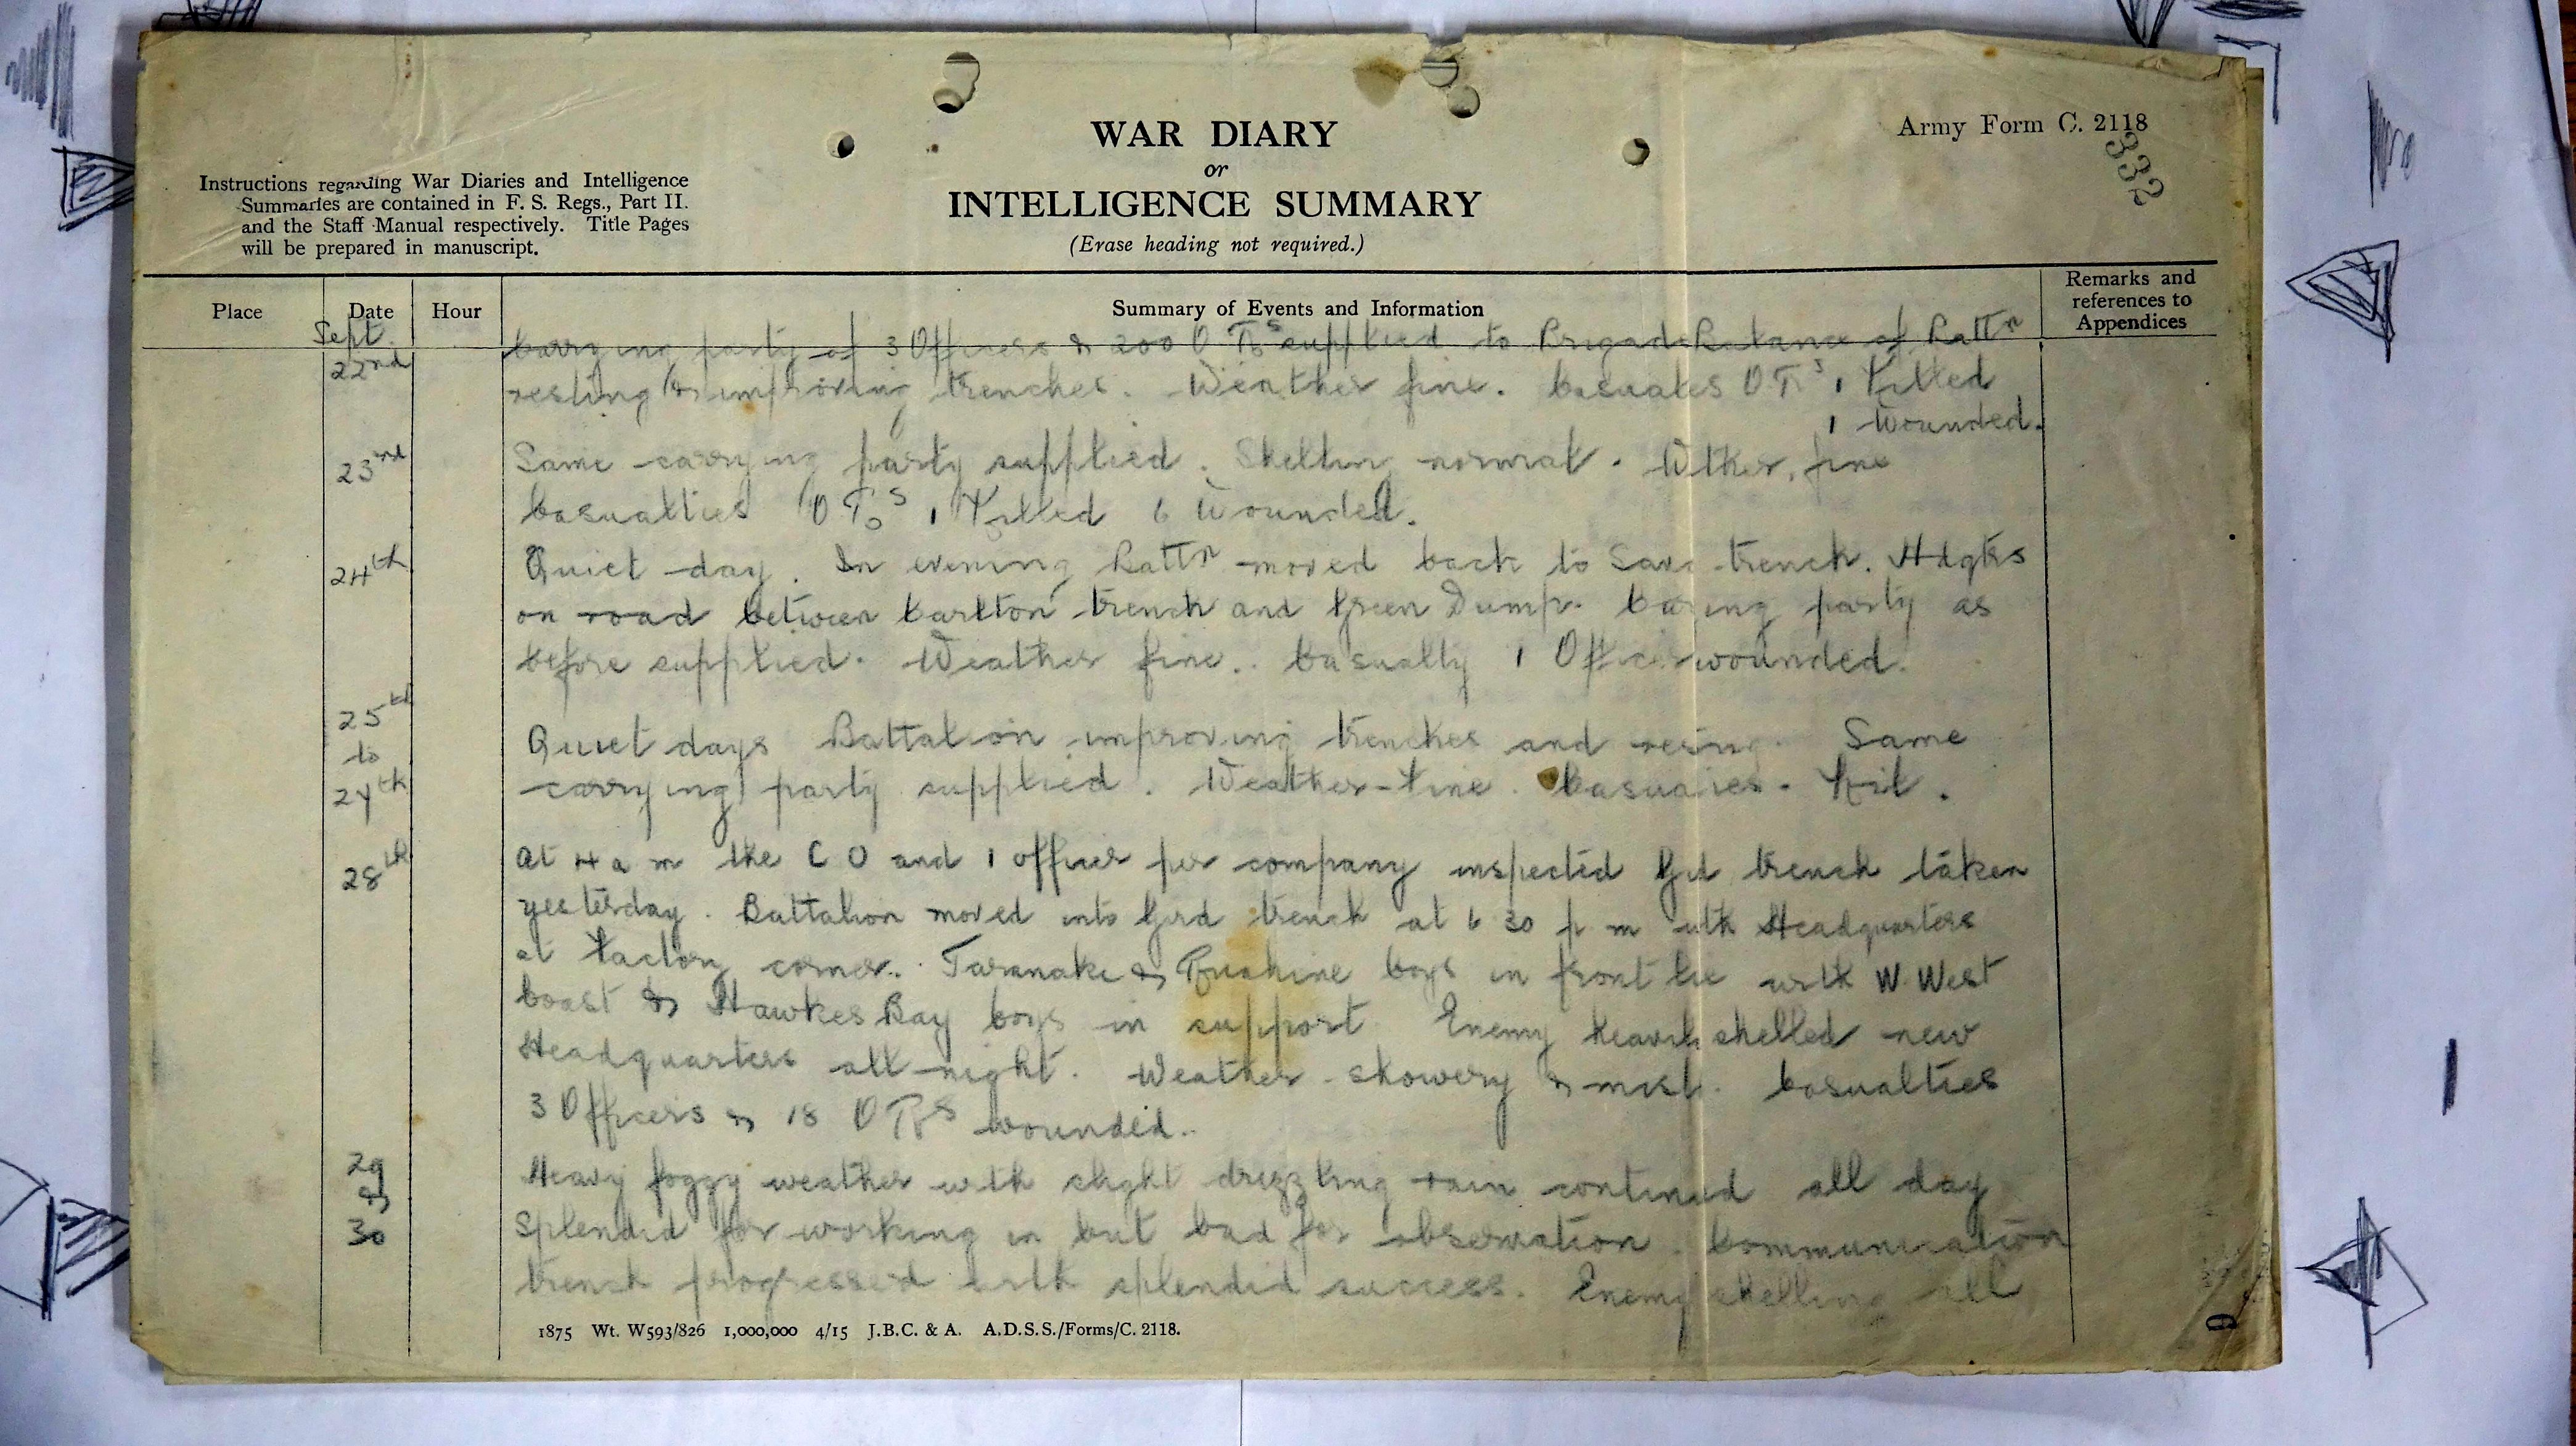 Army Form C. 2118
332
WAR DIARY
or
INTELLIGENCE SUMMARY
(Erase heading not required.)
Instructions regarding War Diaries and Intelligence
Summaries are contained in F. S. Regs., Part II.
and the Staff Manual respectively. Title Pages
will be prepared in manuscript.
Place Date Hour Summary of Events and Information Remarks and references to Appendices
Sept.
22nd Carrying party of 3 Officers & 200 O Rs supplied to Brigade Balance of Battn
resting & improving trenches. Weather fine. Casuates O Rs 1 Killed
1 Wounded.
23rd Same carrying party supplied. Shelling normal. fine
Casualties O Rs 1 Killed 6 Wounded.
24th Quiet day. In evening Battn moved back to trench. Hdqrs
on road between Carlton trench and Green Dump. party as
before supplied. Weather fine. Casualty 1 Officer wounded.
25th
to
27th
Quiet days Battalion improving trenches and Same
carrying party supplied. Weather - fine. Nil.
28th At 4 a m the C O and 1 officer per company inspected trench taken
yesterday. Battalion moved into Gird trench at 6 30 p m with Headquarters
at Factory corner. Taranaki & Ruahine coys in front with W. West
Coast & Hawkes Bay coys in support Enemy heavily shelled new
Headquarters all night. Weather - showery & mist. Casualties
3 Officers & 18 O Rs wounded.
29
&
30
Heavy foggy weather with slight drizzling rain continued all day
Splendid for working in but bad for observation. Communication
trench progressed with splendid success. Enemy shelling all
1875 Wt. W593/826 1,000,000 4/15 J.B.C. & A. A.D.S.S./Forms/C. 2118.